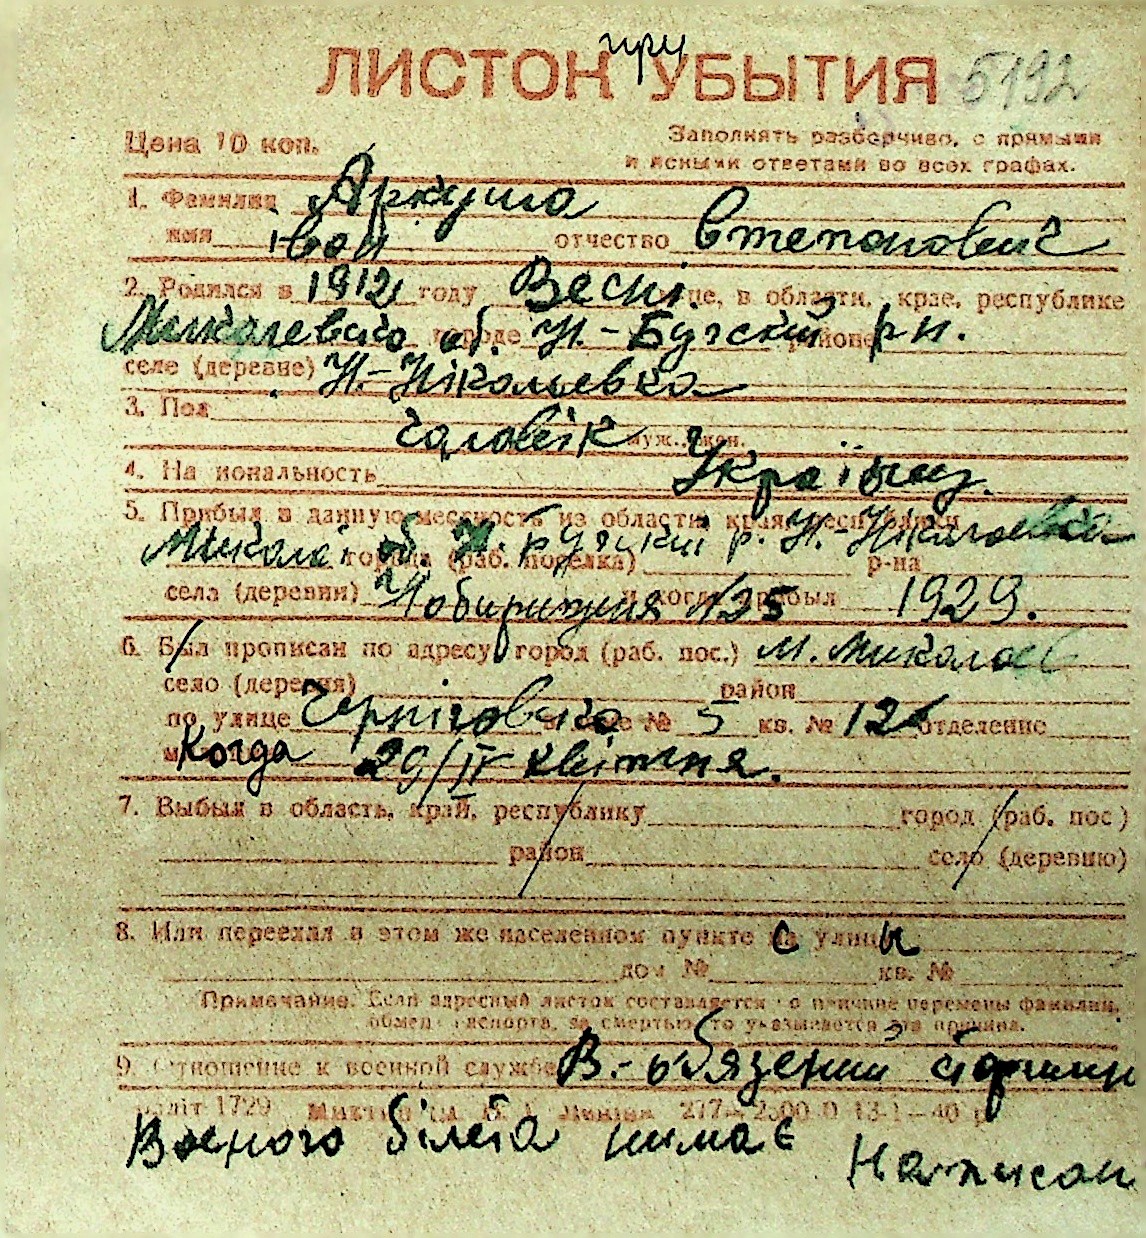 при
ЛИСТОК УБЫТИЯ 5192
Цена 10 коп.
Заполнять разборчиво, с прямыми
и ясными ответами во всех графах.
1. Фамилия Аркуша
имя Іван отчество Степанович
2. Родился в 1912 году Весні це, в области, крае, республике
Миколаевско об. городе Н.-Бугский районе р н.
селе (деревне) Н.-Ніколаевка
3. Пол
чаловік муж., жен.
4. Национальность Українец.
5. Прибыл в данную местность из области, края, республики
Микола об. Н. Бугский р. Н.-Ніколаевка
города (раб. поселка) р-на
села (деревни) и когда прибыл 1929.
6. Был прописан по адресу город (раб. пос.) М. Миколаев
село (деревня) район
по улице Черніговско № 5 кв. № 12 отделение
Когда 29/IV квітня.
7. Выбыл в область, край, республику город (раб. пос)
район село (деревню)
8. Или переехал в этом же населенном пункте с улицы
дом № кв. №
Примечание. Если адресный листок составляется по причине перемены фамилии,
обмен паспорта, за смертью, то указывается эта причина.
9. Отношение к военной службе В.-обязений
1729 13-1-40 р
Военого білета нимає Написан